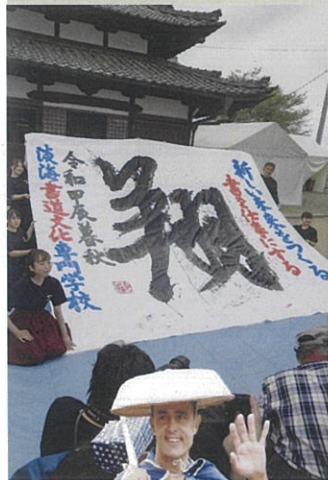 新しい未来をつくる
書を仕事にする
翔
令和甲辰暮秋
淡海書道文化専門学校